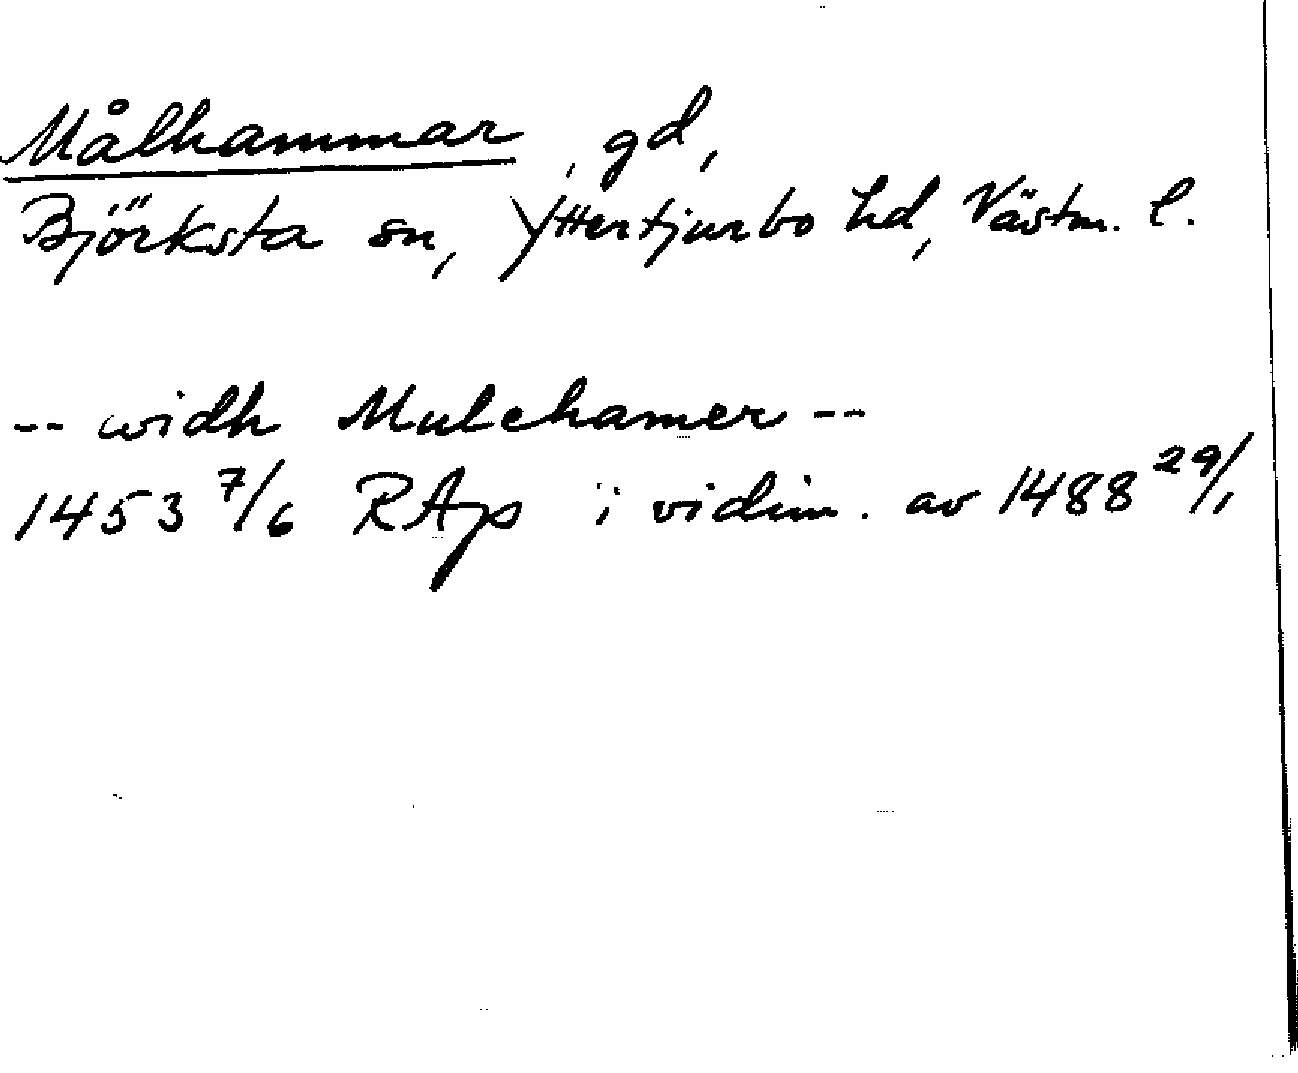 Målhammar, gd,
Björksta sn, Yttertjurbo hd, Västm. l.
-- widh Mulehamer --
1453 7/6 RAp i vidim. av 1488 29/1